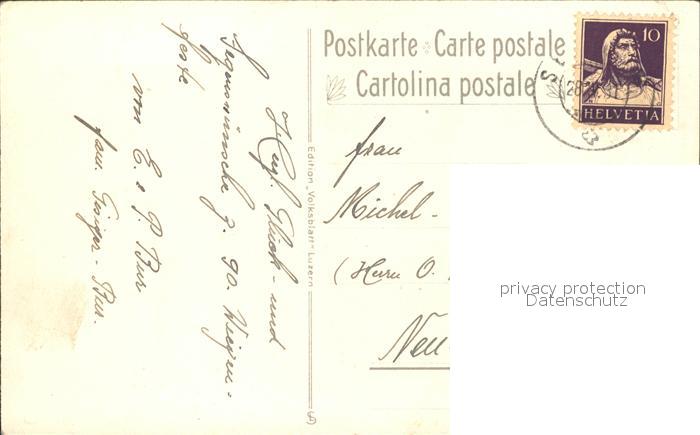 Postkarte Carte postale
Cartolina postale
10
HELVETIA
Herzl. Glück- und
Segenswünsche z. 90. Wiegen-
feste
von E. & P. Bur
fam. Gisiger-Bur.
Edition „Volksblatt" Luzern
Frau
Michel-
(Herrn O.
Neu
privacy protection
Datenschutz